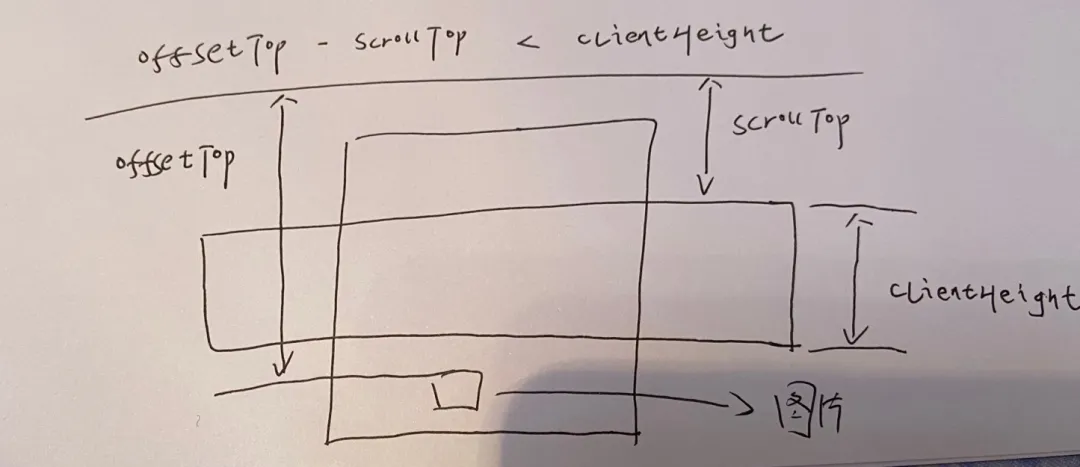 offsetTop - scrollTop < clientHeight
scrollTop
offsetTop
clientHeight
图片